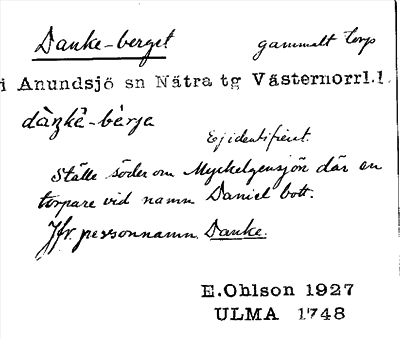 Danke-berget gammalt torp
i Anundsjö sn Nätra tg Västernorrl.l.
dàŋkè-bèrja
Ej identifierat.
Ställe söder om Myckelgensjön där en
torpare vid namn Daniel bott.
Jfr. personnamn Danke.
E.Ohlson 1927
ULMA 1748